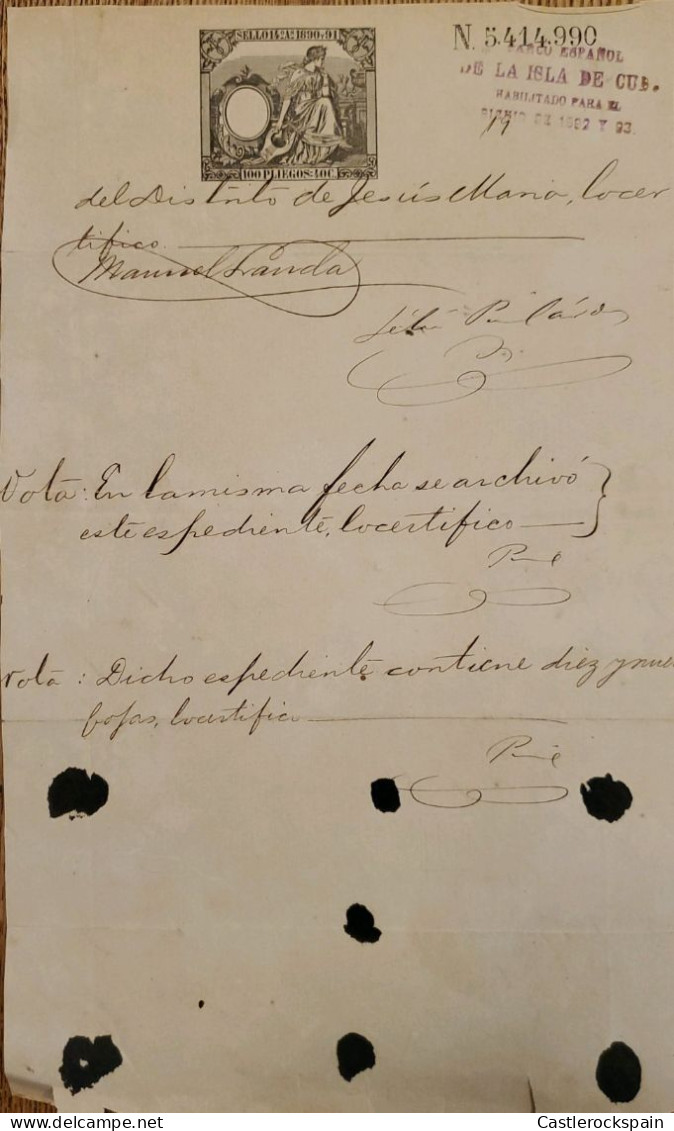 SELLO 14º Aº 1890 y 91
100 PLIEGOS: 40C.
N. 5.414.990
BANCO ESPAÑOL
DE LA ISLA DE CUB.
HABILITADO PARA EL
BIENIO DE 1892 Y 93.
19
del Distrito de Jesús Maria, lo cer
tifico.
Manuel Landa
Nota: En la misma fecha se archivó
este espediente, lo certifico
Nota: Dicho espediente contiene diez y nue
fojas, lo certifico
Castlerockspain